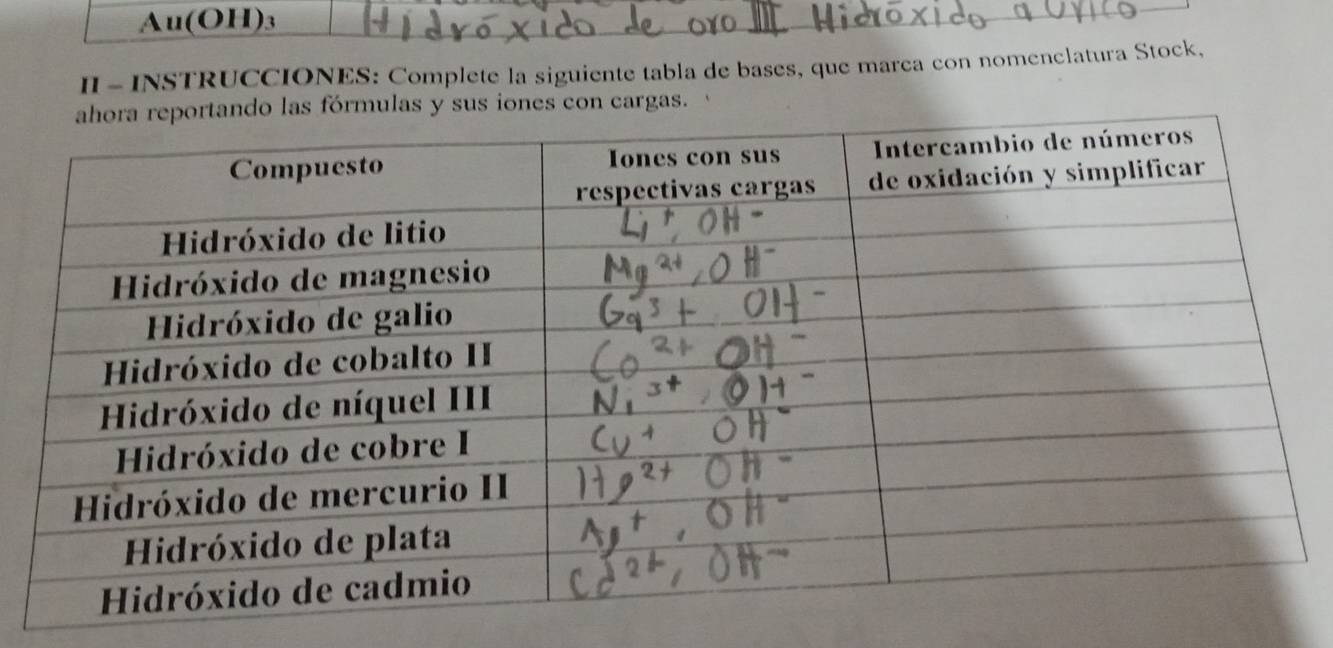 Au(OH)₃ Hidróxido de oro III Hidróxido aúrico
II – INSTRUCCIONES: Complete la siguiente tabla de bases, que marca con nomenclatura Stock,
ahora reportando las fórmulas y sus iones con cargas.
Compuesto Iones con sus respectivas cargas Intercambio de números de oxidación y simplificar
Hidróxido de litio Li⁺, OH⁻
Hidróxido de magnesio Mg²⁺, OH⁻
Hidróxido de galio Ga³⁺ OH⁻
Hidróxido de cobalto II Co²⁺ OH⁻
Hidróxido de níquel III Ni³⁺, OH⁻
Hidróxido de cobre I Cu⁺ OH⁻
Hidróxido de mercurio II Hg²⁺ OH⁻
Hidróxido de plata Ag⁺, OH⁻
Hidróxido de cadmio Cd²⁺, OH⁻